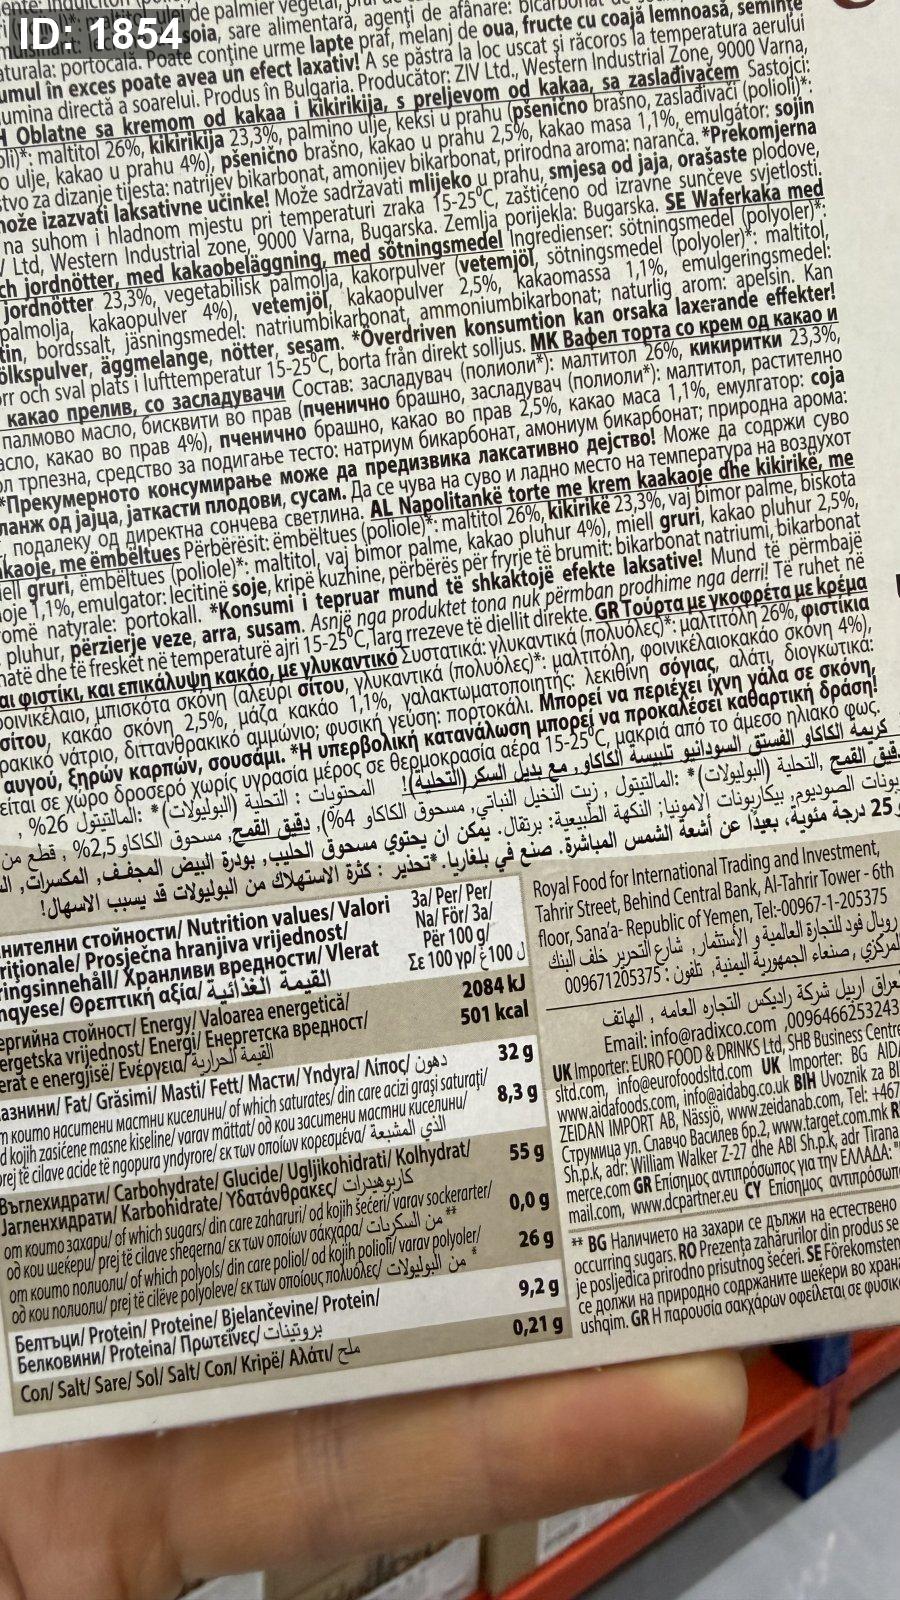 ID: 1854
de palmier vegetal,
soia, sare alimentară, agenți de afânare: bicarbonat
naturală: portocală. Poate conține urme lapte praf, melanj de oua, fructe cu coajă lemnoasă, semințe
umul în exces poate avea un efect laxativ! A se păstra la loc uscat și răcoros la temperatura aerului
lumina directă a soarelui. Produs în Bulgaria. Producător: ZIV Ltd., Western Industrial Zone, 9000 Varna,
H Oblatne sa kremom od kakaa i kikirikija, s preljevom od kakaa, sa zaslađivačem Sastojci:
oli)*: maltitol 26%, kikirikija 23,3%, palmino ulje, keksi u prahu (pšenično brašno, zaslađivači (polioli)*:
o ulje, kakao u prahu 4%), pšenično brašno, kakao u prahu 2,5%, kakao masa 1,1%, emulgátor: sojin
stvo za dizanje tijesta: natrijev bikarbonat, amonijev bikarbonat, prirodna aroma: naranča. *Prekomjerna
može izazvati laksativne učinke! Može sadržavati mlijeko u prahu, smjesa od jaja, orašaste plodove,
na suhom i hladnom mjestu pri temperaturi zraka 15-25°C, zaštićeno od izravne sunčeve svjetlosti.
V Ltd, Western Industrial zone, 9000 Varna, Bugarska. Zemlja porijekla: Bugarska. SE Waferkaka med
ch jordnötter, med kakaobeläggning, med sötningsmedel Ingredienser: sötningsmedel (polyoler)*:
jordnötter 23,3%, vegetabilisk palmolja, kakorpulver (vetemjöl, sötningsmedel (polyoler)*: maltitol,
palmolja, kakaopulver 4%), vetemjöl, kakaopulver 2,5%, kakaomassa 1,1%, emulgeringsmedel:
tin, bordssalt, jäsningsmedel: natriumbikarbonat, ammoniumbikarbonat; naturlig arom: apelsin. Kan
ölkspulver, äggmelange, nötter, sesam. *Overdriven konsumtion kan orsaka laxerande effekter!
rr och sval plats i lufttemperatur 15-25°C, borta från direkt solljus. МК Вафел торта со крем од какао и
какао прелив, со засладувачи Состав: засладувач (полиоли*): малтитол 26%, кикиритки 23,3%,
палмово масло, бисквити во прав (пченично брашно, засладувач (полиоли*): малтитол, растително
асло, какао во прав 4%), пченично брашно, какао во прав 2,5%, какао маса 1,1%, емулгатор: соја
ол трпезна, средство за подигање тесто: натриум бикарбонат, амониум бикарбонат; природна арома:
*Прекумерното консумирање може да предизвика лаксативно дејство! Може да содржи суво
ланж од јајца, јаткасти плодови, сусам. Да се чува на суво и ладно место на температура на воздухот
, подалеку од директна сончева светлина. AL Napolitankë torte me krem kaakaoje dhe kikirikë, me
akaoje, me ëmbëltues Përbërësit: ëmbëltues (poliole)*: maltitol 26%, kikirikë 23,3%, vaj bimor palme, biskota
iell gruri, ëmbëltues (poliole)*: maltitol, vaj bimor palme, kakao pluhur 4%), miell gruri, kakao pluhur 2,5%,
oje 1,1%, emulgator: lecitinë soje, kripë kuzhine, përbërës për fryrje të brumit: bikarbonat natriumi, bikarbonat
omë natyrale: portokall. *Konsumi i tepruar mund të shkaktojë efekte laksative! Mund të përmbajë
pluhur, përzierje veze, arra, susam. Asnjë nga produktet tona nuk përmban prodhime nga derri! Të ruhet në
hatë dhe të freskët në temperaturë ajri 15-25°C, larg rrezeve të diellit direkte. GR Τούρτα με γκοφρέτα με κρέμα
αι φιστίκι, και επικάλυψη κακάο, με γλυκαντικό Συστατικά: γλυκαντικά (πολυόλες)*: μαλτιτόλη 26%, φιστίκια
οινικέλαιο, μπισκότα σκόνη (αλεύρι σίτου, γλυκαντικά (πολυόλες)*: μαλτιτόλη, φοινικέλαιοκακάο σκόνη 4%),
σίτου, κακάο σκόνη 2,5%, μάζα κακάο 1,1%, γαλακτωματοποιητής: λεκιθίνη σόγιας, αλάτι, διογκωτικά:
ρακικό νάτριο, διττανθρακικό αμμώνιο; φυσική γεύση: πορτοκάλι. Μπορεί να περιέχει ίχνη γάλα σε σκόνη,
αυγού, ξηρών καρπών, σουσάμι. *Η υπερβολική κατανάλωση μπορεί να προκαλέσει καθαρτική δράση!
είται σε χώρο δροσερό χωρίς υγρασία μέρος σε θερμοκρασία αέρα 15-25°C, μακριά από το άμεσο ηλιακό φως.
كريمة الكاكاو الفستق السوداني تلبيسة الكاكاو, مع بديل السكر (التحلية)! المحتويات : التحلية (البوليولات)* :المالتيتول 26% ,
دقيق القمح ,التحلية (البوليولات)* :المالتيتول , زيت النخيل النباتي, مسحوق الكاكاو 4%), دقيق القمح, مسحوق الكاكاو2,5% , قطع من
بونات الصوديوم, بيكاربونات الامونيا: النكهة الطبيعية: برتقال. يمكن ان يحتوي مسحوق الحليب, بودرة البيض المجفف, المكسرات,
25 درجة مئوية، بعيدًا عن أشعة الشمس المباشرة. صنع في بلغاريا. *تحذير : كثرة الاستهلاك من البوليولات قد يسبب الاسهال!
нителни стойности/ Nutrition values/ Valori
riționale/ Prosječna hranjiva vrijednost/
ringsinnehåll/ Хранливи вредности/ Vlerat
nqyese/ Θρεπτική αξία/ القيمة الغذائية
За/ Per/ Per/
Na/ För/ За/
Për 100 g/
Σε 100 γρ/ 100 غ
ергийна стойност/ Energy/ Valoarea energetică/
ergetska vrijednost/ Energi/ Енергетска вредност/
erat e energjisë/ Ενέργεια/ القيمة الحرارية
2084 kJ
501 kcal
азнини/ Fat/ Grăsimi/ Masti/ Fett/ Масти/ Yndyra/ Λίπος/ دهون
32 g
т които наситени мастни киселини/ of which saturates/ din care acizi grași saturați/
d kojih zasićene masne kiseline/ varav mättat/ од кои заситени мастни киселини/
prej të cilave acide të ngopura yndyrore/ εκ των οποίων κορεσμένα/ الذي المشبعة
8,3 g
Въглехидрати/ Carbohydrate/ Glucide/ Ugljikohidrati/ Kolhydrat/
Јагленхидрати/ Karbohidrate/ Υδατάνθρακες/ كاربوهيدرات
55 g
от които захари/ of which sugars/ din care zaharuri/ od kojih šećeri/ varav sockerarter/
од кои шеќери/ prej të cilave sheqerna/ εκ των οποίων σάκχαρα/ من السكريات**
0,0 g
от които полиоли/ of which polyols/ din care polioli/ od kojih polioli/ varav polyoler/
од кои полиоли/ prej të cilëve polyoleve/ εκ των οποίους πολυόλες/ من البوليولات*
26 g
Белтъци/ Protein/ Proteine/ Bjelančevine/ Protein/
Белковини/ Proteina/ Πρωτεΐνες/ بروتينات
9,2 g
Сол/ Salt/ Sare/ Sol/ Salt/ Сол/ Kripë/ Αλάτι/ ملح
0,21 g
Royal Food for International Trading and Investment,
Tahrir Street, Behind Central Bank, Al-Tahrir Tower - 6th
floor, Sana'a- Republic of Yemen, Tel:-00967-1-205375
رويال فود للتجارة العالمية و الأستثمار, شارع التحرير خلف البنك
المركزي , صنعاء الجمهورية اليمنية, تلفون : 009671205375
عراق اربيل شركة راديكس التجاره العامه , الهاتف
Email: info@radixco.com ,0096466253243
UK Importer: EURO FOOD & DRINKS Ltd, SHB Business Centre
sltd.com, info@eurofoodsltd.com UK Importer: BG AIDA
www.aidafoods.com, info@aidabg.co.uk BIH Uvoznik za BI
ZEIDAN IMPORT AB, Nässjö, www.zeidanab.com, Tel: +467
Струмица ул. Славчо Василев бр.2, www.target.com.mk R
Sh.p.k, adr: William Walker Z-27 dhe ABI Sh.p.k, adr Tirana
merce.com GR Επίσημος αντιπρόσωπος για την ΕΛΛΑΔΑ:
mail.com, www.dcpartner.eu CY Επίσημος αντιπρόσωπ
** BG Наличието на захари се дължи на естествено
occurring sugars. RO Prezența zaharurilor din produs se
je posljedica prirodno prisutnog šećeri. SE Förekomsten
се должи на природно содржаните шеќери во храна
ushqim. GR Η παρουσία σακχάρων οφείλεται σε φυσικ